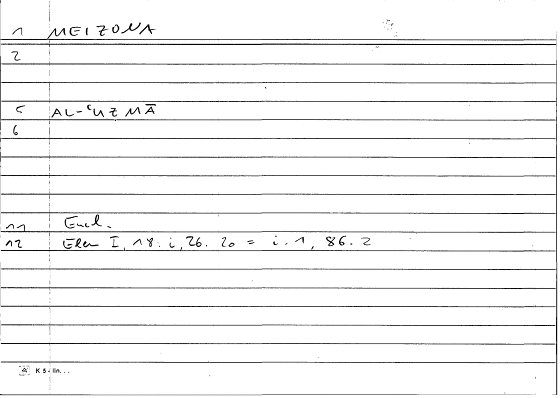 1 MEIZONA
2
5 AL-ʿUZMĀ
6
11 Eucl.
12 Elem I, 18. i, 26. 20 = i. 1, 86. 2
K 5